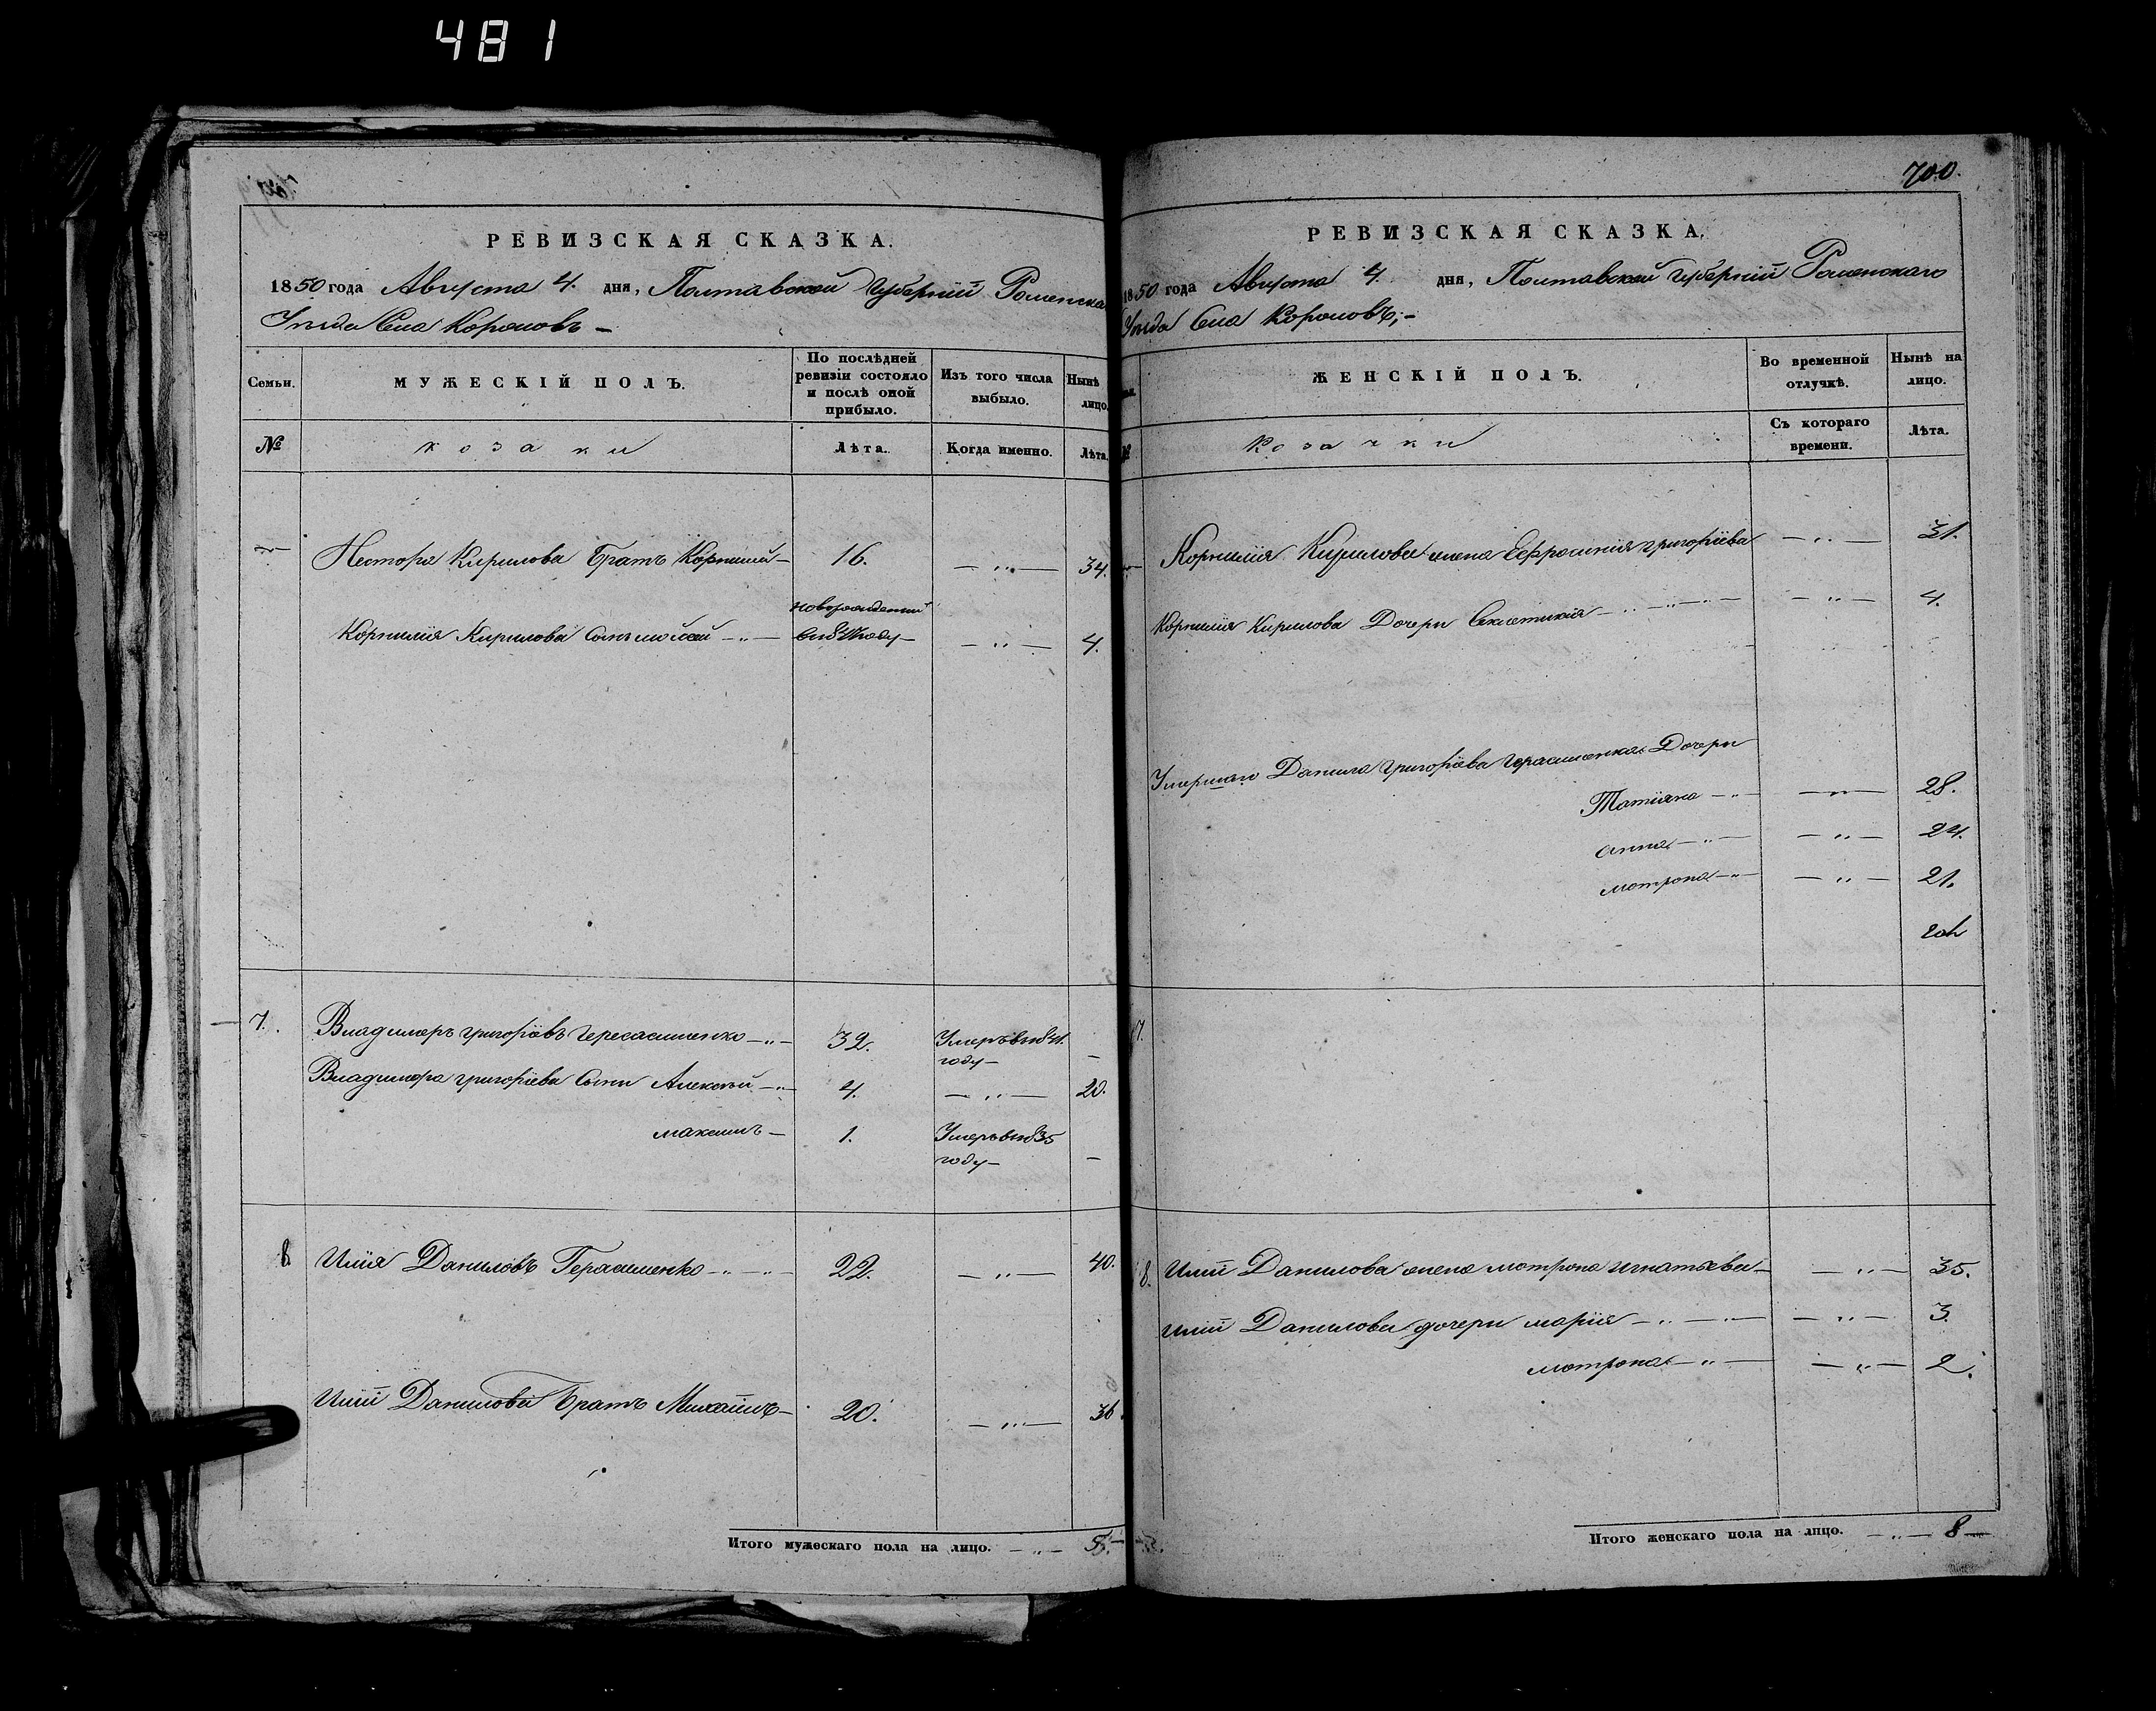 481
РЕВИЗСКАЯ СКАЗКА.
1850 года Августа 4. дня, Полтавской Губерніи Роменска
Уѣзда Села Корововъ —
Семьи.
МУЖЕСКІЙ ПОЛЪ.
По послѣдней ревизіи состояло и послѣ оной прибыло.
Изъ того числа выбыло.
Нынѣ лицо.
№
козаки
Лѣта.
Когда именно.
Лѣта.
Нестора Кирилова Братъ Корнилій — 16. — „ — 34.
новорожденный
Корнилія Кирилова Сынъ Мойсей — „ — году — — „ — 4.
7. Владимеръ Григоріевъ Герасименко — „ — 32. Умеръ в 1841.
году — —
Владимера Григоріева Сыны Алексѣй — „ — 4. — „ — 20.
Максимъ — 1. Умеръ в 1835
году — —
8 Илія Даниловъ Герасименко — „ — „ — 22. — „ — 40.
Иліи Данилова Братъ Михаилъ — 20. — „ — 36.
Итого мужескаго пола на лицо. — „ — 5. —
700.
РЕВИЗСКАЯ СКАЗКА.
1850 года Августа 4. дня, Полтавской Губерніи Роменскаго
Уѣзда Села Корововъ; —
ЖЕНСКІЙ ПОЛЪ.
Во временной отлучкѣ.
Нынѣ на лицо.
№
козачки
Съ котораго времени.
Лѣта.
Корнилія Кирилова жена Ефросинія Григоріева — „ — 31.
Корнилія Кирилова Дочери — „ — „ — — „ — 4.
Умершаго Данила Григоріева Герасименка Дочери
Татіяна — „ — „ — 28.
Анна — „ — — „ — 24.
Мотрона — „ — — „ — 21.
7.
8. Иліи Данилова жена Мотрона Игнатьева — — „ — 35.
Иліи Данилова дочери Марія — „ — „ — — „ — 3.
Мотрона — „ — — „ — 2.
Итого женскаго пола на лицо. — „ — 8 —